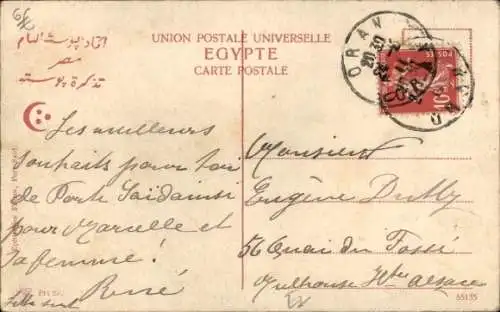 UNION POSTALE UNIVERSELLE
EGYPTE
CARTE POSTALE
اتحاد البوستة العام
مصر
تذكرة بوستة
ORAN
20 30
ORAN
POSTES
10
Les meilleurs
souhaits pour toi
de Port Saïd ainsi
pour Marcelle et
ta femme!
René
Monsieur
Eugène
56 Quai du Fossé
Mulhouse Hte Alsace
55135